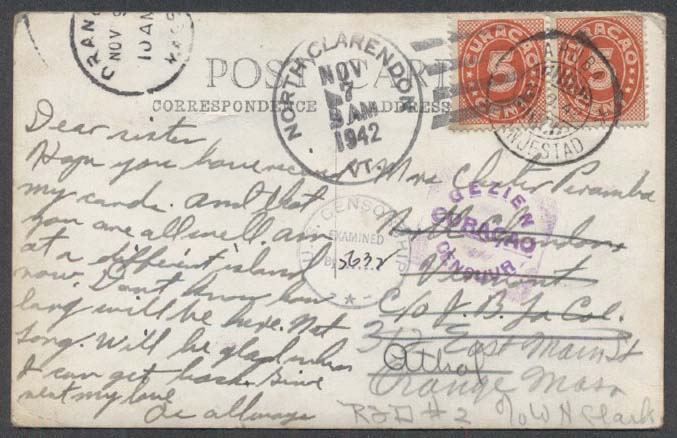 ORANGE
NOV 9
10 AM
MASS
POST CARD
CORRESPONDENCE
ADDRESS
NORTH CLARENDON
NOV
7
AM
1942
VT.
CURAÇAO
5
CENT
CURAÇAO
CENT
ARUBA
ORANJESTAD
Dear sister
Hope you have received
my cards. and that
you are all well. am
at a different island
now. Dont know how
long will be here. Not
long. Will be glad when
I can get back. Give
rest my love
as always
Mrs Chester
N. Clarendon
Vermont
C/o J. B. Co.
312 East Main St
Athol
Orange Mass
RFD #2 c/o W N Clark
U.S. CENSORSHIP
EXAMINED
BY
5632
GEZIEN
CURAÇAO
CENSUUR